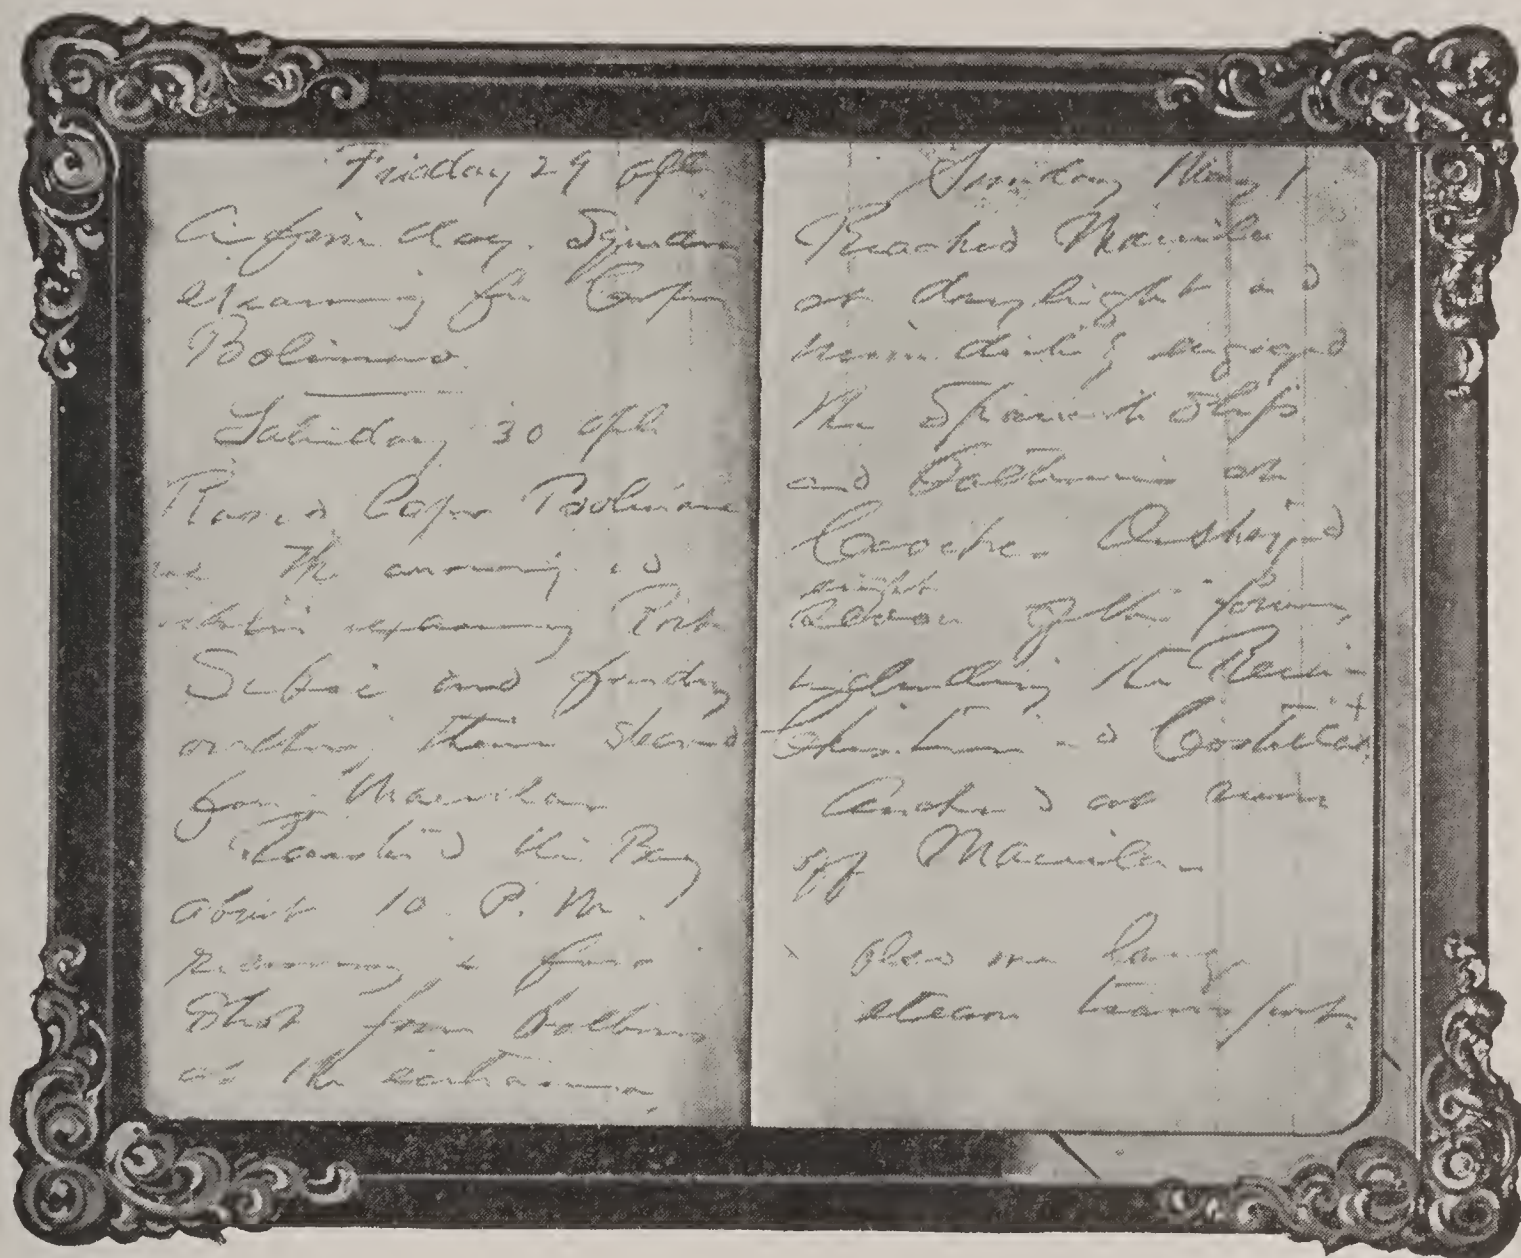 Friday 29 Apl
A fine day. Squadron
steaming for Cape
Bolinao.
Saturday 30 Apl
Raised Cape Bolinao
in the morning and
after examining Port
Subic and finding
nothing there steamed
for Manila
Reached the Bay
about 10 P. M.
receiving a few
shot from batteries
at the entrance.
Sunday May 1
Reached Manila
at daylight and
immediately engaged
the Spanish Ships
and Batteries at
Cavite. Destroyed
eight
of the former,
including the Reina
Christina and Castilla.
Anchored at noon
off Manila.
steam transport.